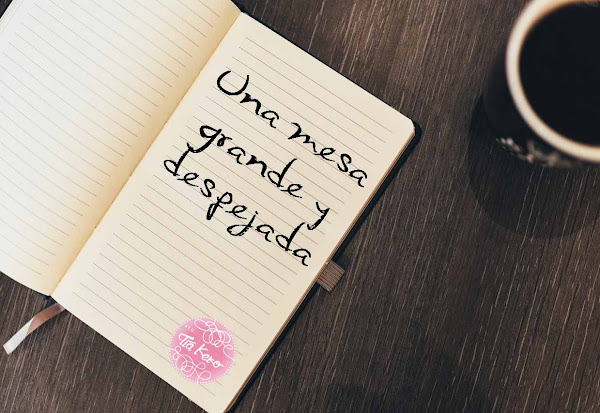 Una mesa
grande y
despejada
Tía Kero